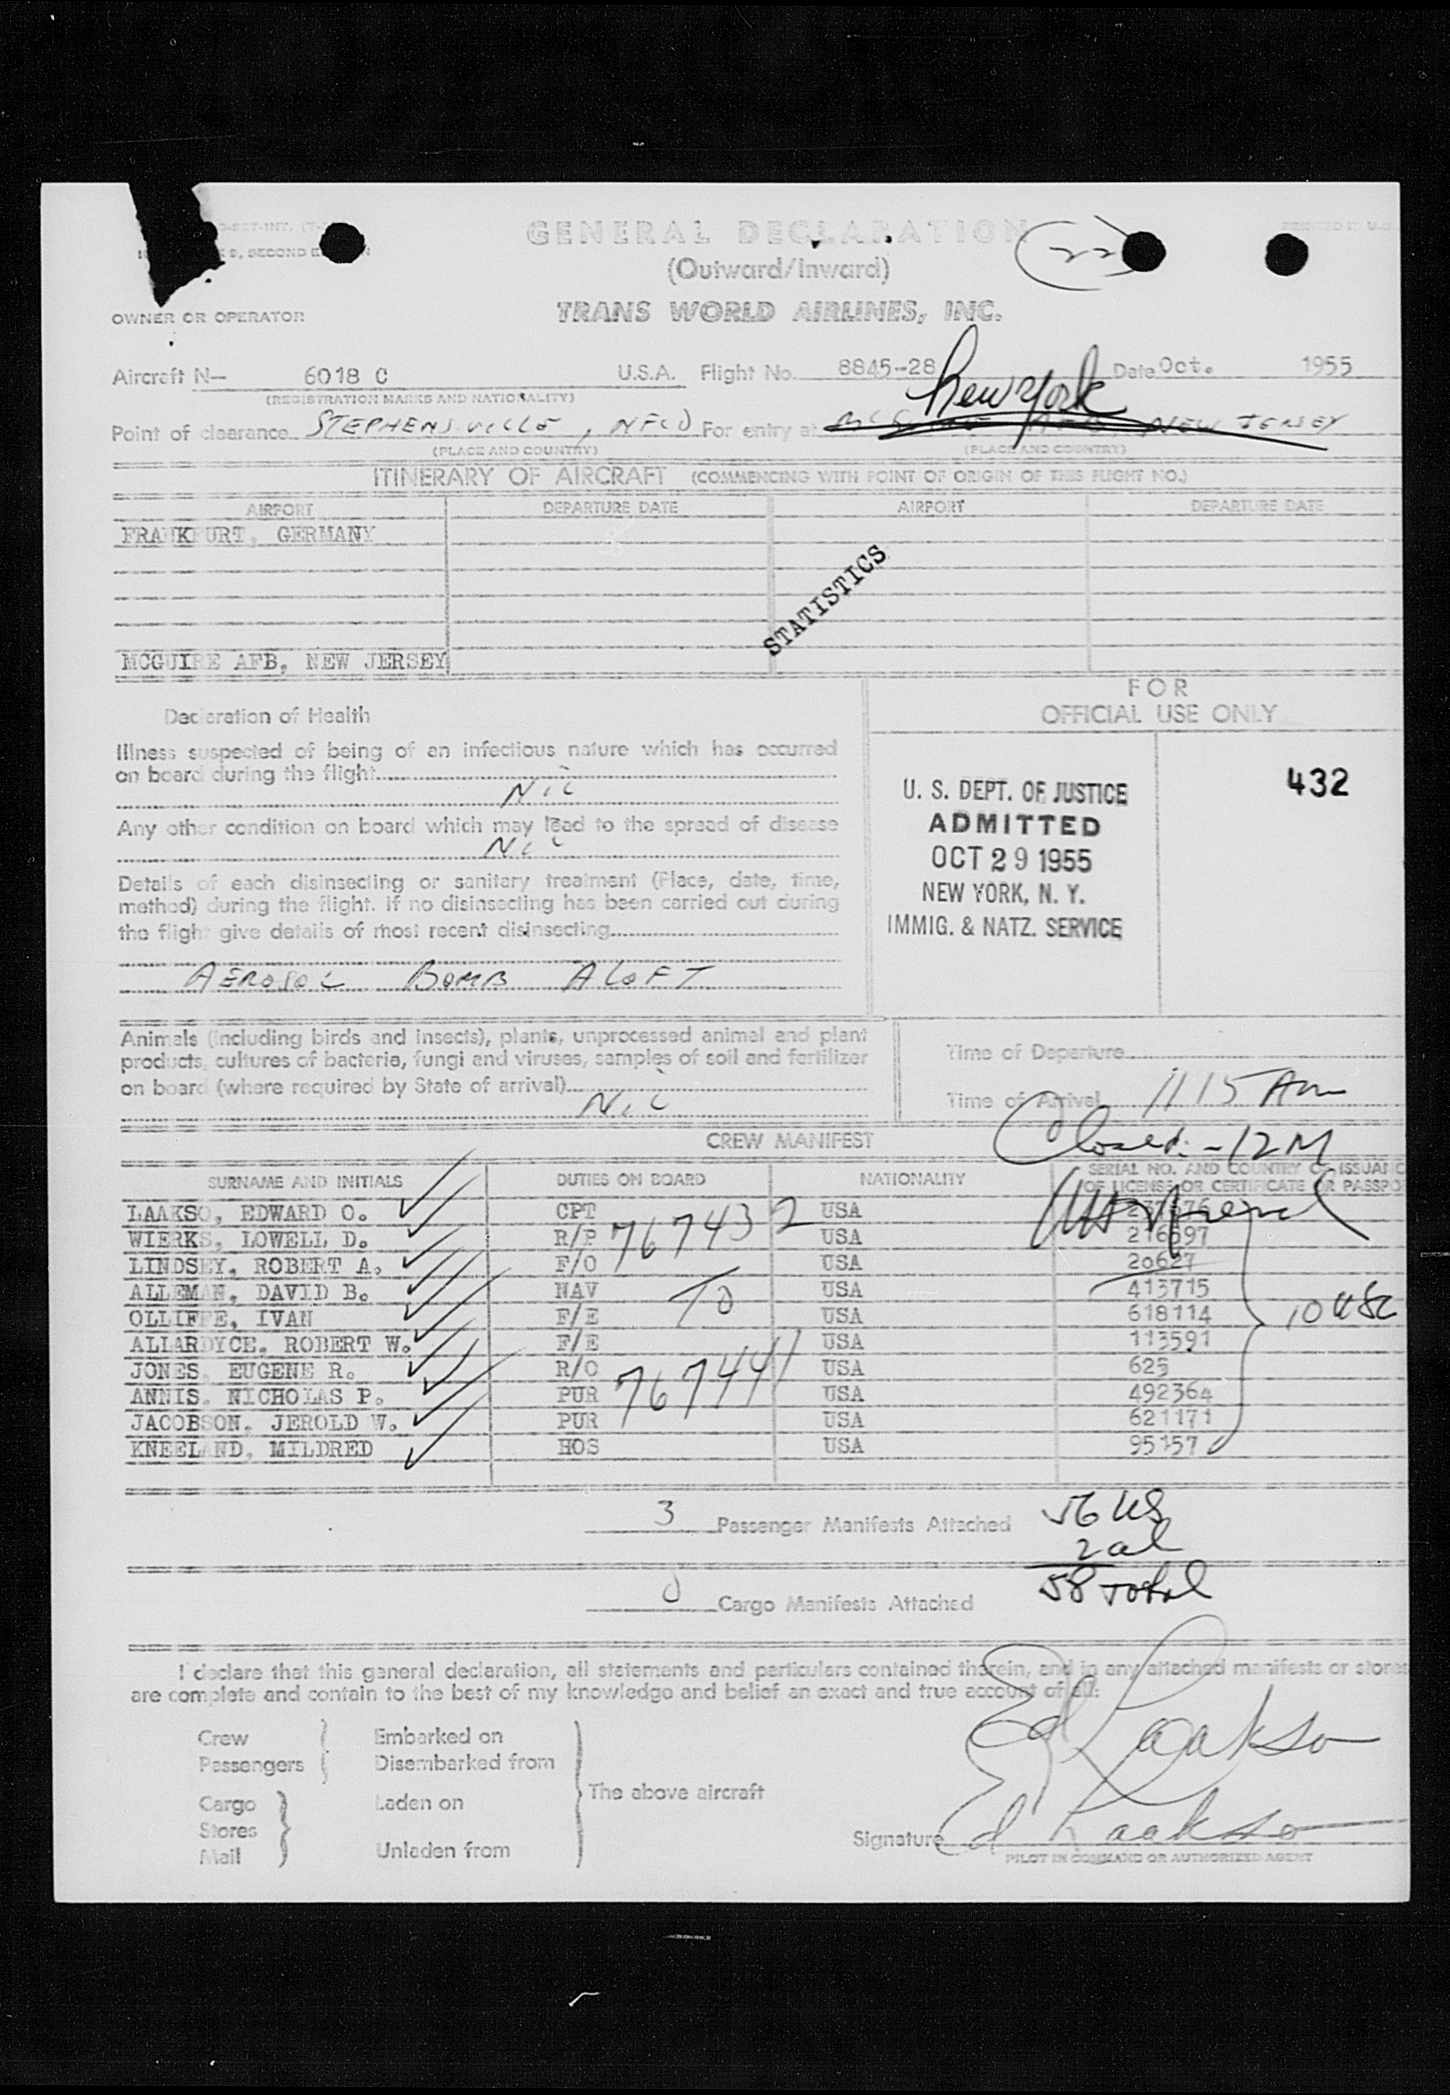 GENERAL DECLARATION
(Outward/Inward)
22
OWNER OR OPERATOR TRANS WORLD AIRLINES, INC.
Aircraft N— 6018 C U.S.A. Flight No. 8845-28 Date Oct. 1955
(REGISTRATION MARKS AND NATIONALITY)
New York
Point of clearance STEPHENSVILLE, NFLD For entry at MCGUIRE AFB, NEW JERSEY
(PLACE AND COUNTRY) (PLACE AND COUNTRY)
ITINERARY OF AIRCRAFT (COMMENCING WITH POINT OF ORIGIN OF THIS FLIGHT NO.)
AIRPORT DEPARTURE DATE AIRPORT DEPARTURE DATE
FRANKFURT, GERMANY
STATISTICS
MCGUIRE AFB, NEW JERSEY
Declaration of Health
Illness suspected of being of an infectious nature which has occurred
on board during the flight
Nil
Any other condition on board which may lead to the spread of disease
Nil
Details of each disinsecting or sanitary treatment (Place, date, time,
method) during the flight. If no disinsecting has been carried out during
the flight give details of most recent disinsecting
AEROSOL BOMB ALOFT
FOR
OFFICIAL USE ONLY
U. S. DEPT. OF JUSTICE
ADMITTED
OCT 29 1955
NEW YORK, N. Y.
IMMIG. & NATZ. SERVICE
432
Animals (including birds and insects), plants, unprocessed animal and plant
products, cultures of bacteria, fungi and viruses, samples of soil and fertilizer
on board (where required by State of arrival)
Nil
Time of Departure
Time of Arrival 1115 Am
Closed - 12 M
CREW MANIFEST
SURNAME AND INITIALS DUTIES ON BOARD NATIONALITY SERIAL NO. AND COUNTRY OF ISSUANC
OF LICENSE OR CERTIFICATE OR PASSPO
LAAKSO, EDWARD O. CPT USA
WIERKS, LOWELL D. R/P USA 216597
LINDSEY, ROBERT A. F/O USA 20627
ALLEMAN, DAVID B. NAV USA 413715
OLLIFFE, IVAN F/E USA 618114
ALLARDYCE, ROBERT W. F/E USA 113591
JONES, EUGENE R. R/O USA 625
ANNIS, NICHOLAS P. PUR USA 492364
JACOBSON, JEROLD W. PUR USA 621171
KNEELAND, MILDRED HOS USA 95157
767432
To
767441
10 USC
3 Passenger Manifests Attached
56 US
2 al
58 Total
0 Cargo Manifests Attached
I declare that this general declaration, all statements and particulars contained therein, and in any attached manifests or stores
are complete and contain to the best of my knowledge and belief an exact and true account of all:
Crew Embarked on
Passengers Disembarked from
The above aircraft
Cargo Laden on
Stores
Mail Unladen from
Ed Laakso
Signature Ed Laakso
PILOT IN COMMAND OR AUTHORIZED AGENT